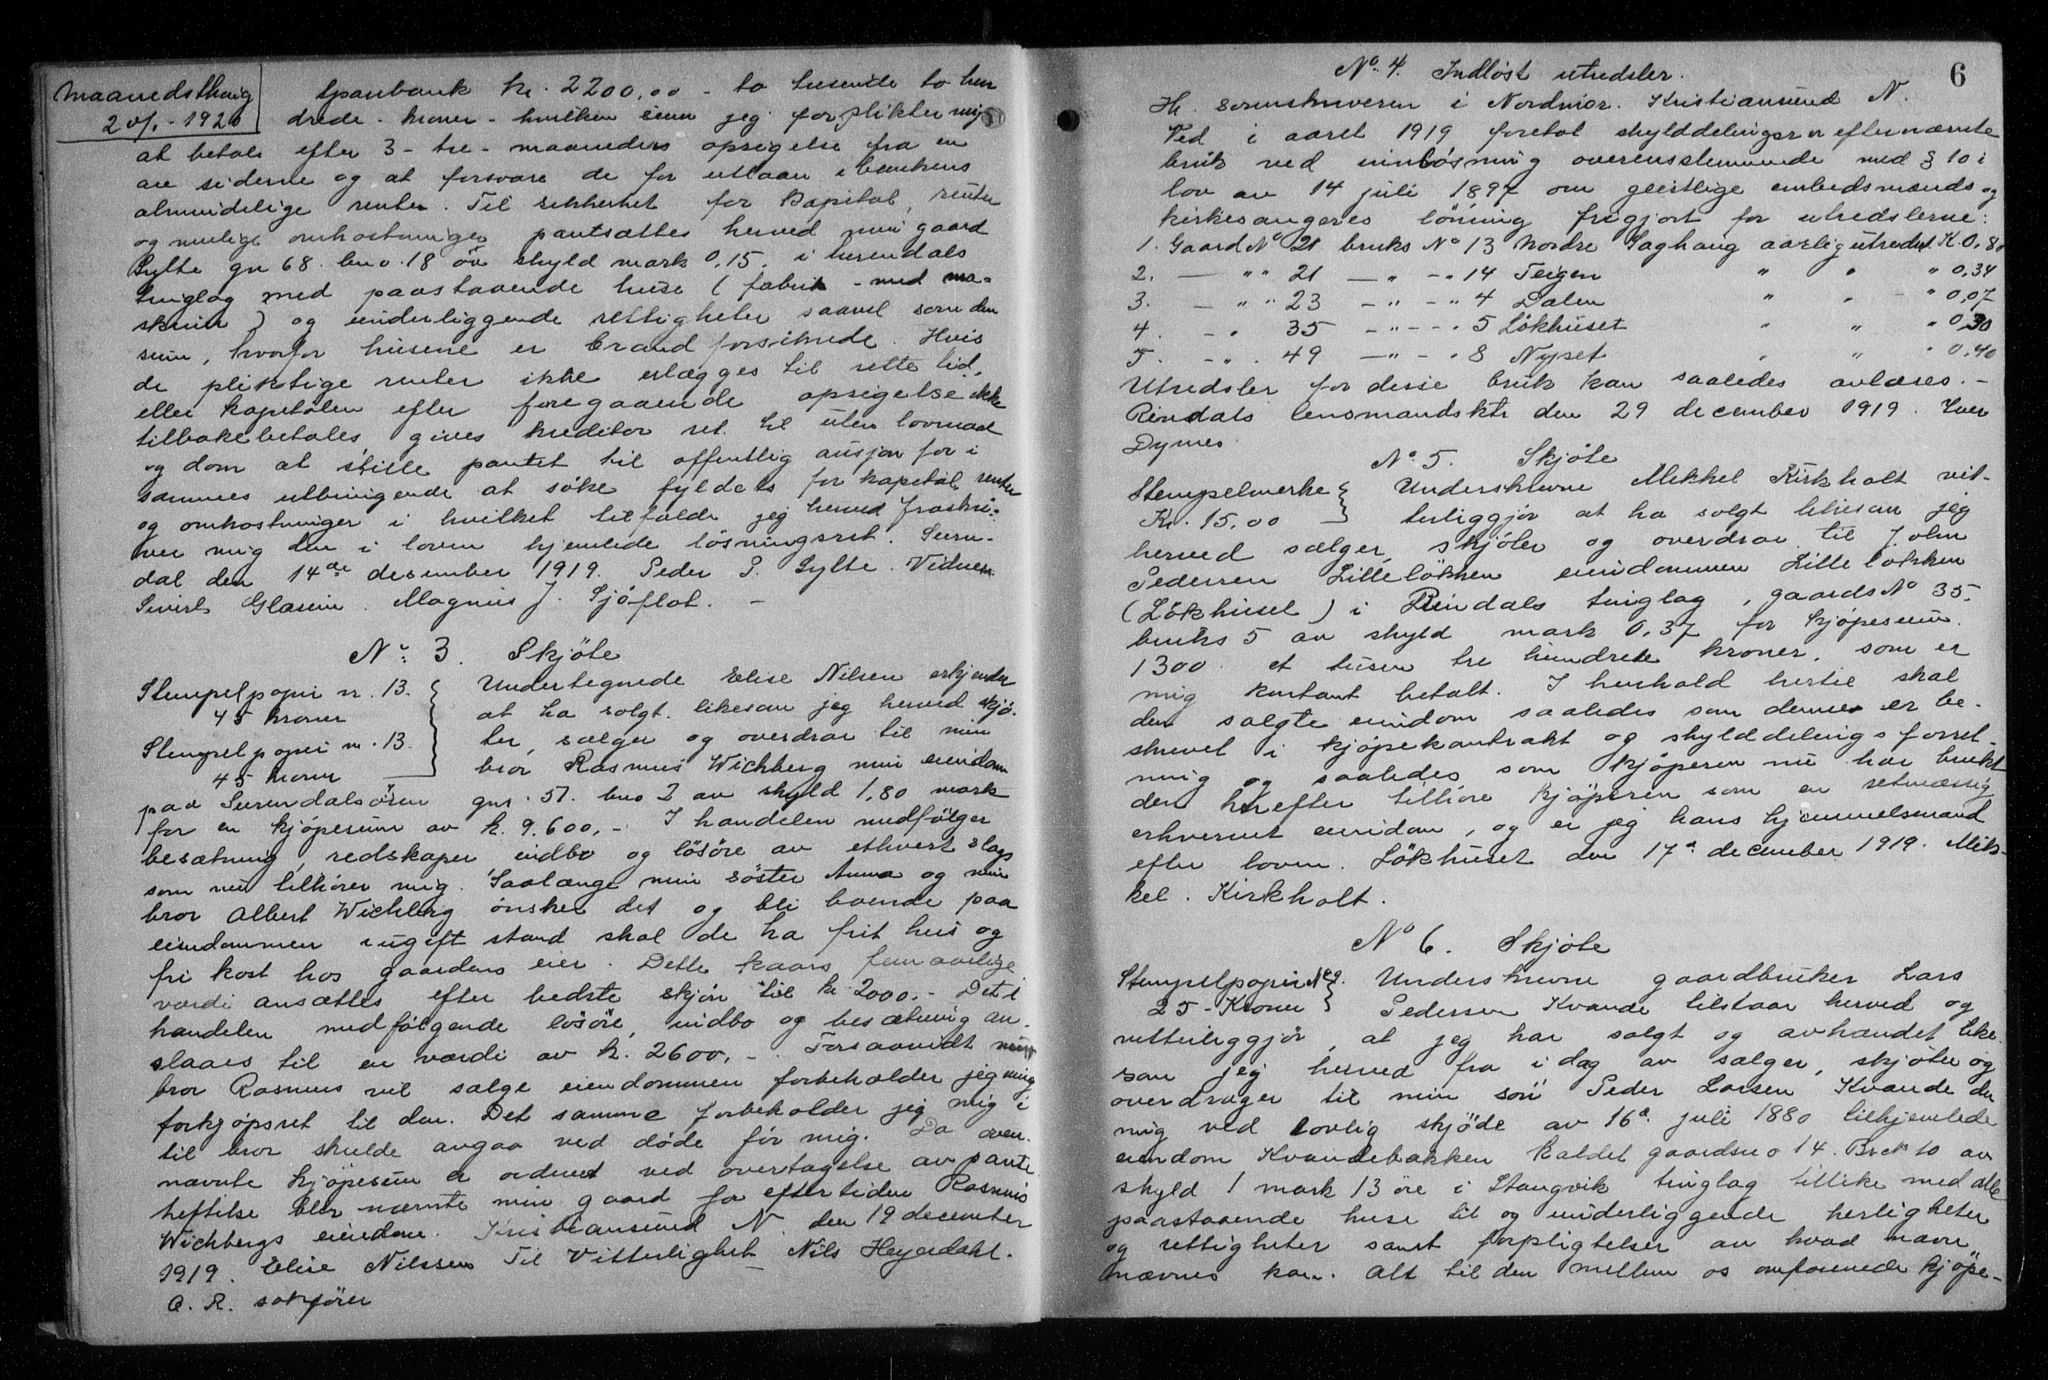 Maanedsthing
20/1 - 1920
Sparebank kr. 2200,00 - to tusende to hun
drede - kroner - hvilken sum jeg forplikter mig
at betale efter 3 - tre - maaneders opsigelse fra en
av siderne og at forsvare de for utlaan i bankens
almindelige renter. Til sikkerhet for Kapital, renter
og mulige omkostninger pantsættes herved min gaard
Sylte gn 68. bno. 18 av skyld mark 0,15. i Surendals
tinglag med paastaaende huse (fabrik - med ma-
skiner) og underliggende rettigheter saavel som den
sum, hvorfor husene er brandforsikrede. Hvis
de pliktige renter ikke erlægges til rette tid,
eller kapitalen efter foregaaende opsigelse ikke
tilbakebetales, gives kreditor ret til uten lovmaal
og dom at stille pantet til offentlig ausjon for i
sammes utbringende at søke fyldest for kapital renter
og omkostninger i hvilket tilfælde jeg herved fraskri-
ver mig den i loven hjemlede løsningsret. Suren-
dal den 14de desember 1919. Peder P. Sylte. Vidner
Sivert Glærum. Magnus J. Sjøflot. -
No. 3. Skjøte
Stempelpapir nr. 13.
45 kroner
Stempelpapir nr. 13.
45 kroner
Undertegnede Elise Nilsen erkjender
at ha solgt likesom jeg herved skjø-
ter, sælger og overdrar til min
bror Rasmus Wichberg min eiendom
paa Surendalsøren gnr. 57. bno 2 av skyld 1,80 mark
for en kjøpesum av k. 9.600,- I handelen medfølger
besætning, redskaper, indbo og løsøre av ethvert slags
som nu tilhører mig. Saalænge min søster Anna og min
bror Albert Wichberg ønsker det og bli boende paa
eiendommen i ugift stand skal de ha frit hus og
fri kost hos gaardens eier. Dette kaars femaarlige
værdi ansættes efter bedste skjøn til kr 2000.- Det i
handelen medfølgende løsøre, indbo og besætning an-
slaaes til en værdi av k. 2600,-. Forsaavidt min
bror Rasmus vil sælge eiendommen forbeholder jeg mig
forkjøpsret til den. Det samme forbeholder jeg mig i
til bror skulde avgaa ved døde før mig. Da oven-
nævnte kjøpesum er ordnet ved overtagelse av pante
heftelse blir nævnte min gaard for eftertiden Rasmus
Wichbergs eiendom. Kristiansund N. den 19 december
1919. Elise Nilssen Til Vitterlighet Nils Heyerdahl.
O. R. sakfører
6
No. 4. Indløst utredsler.
Hr. sorenskriveren i Nordmør. Kristiansund N.
Ved i aaret 1919 foretat skylddelinger er efternævnte
bruk ved innløsning overensstemmende med § 10 i
lov av 14 juli 1897 om geistlige embedsmænds og
kirkesangeres lønning frigjort for utredslerne:
1. Gaard No 21 bruks No 13 Nordre Saghaug aarlig utredsel K 0,80
2. — " " 21 — " - " 14 Teigen " " " 0,34
3. — " " 23 — " - " 4 Dalen " " " 0,07
4. - " 35 — " - - " 5 Løkhuset " " " 0,30
5. - " 49 — " - " 8 Nyset " " " 0,40
Utredsler for disse bruk kan saaledes avlæses. -
Rindals lensmandsktr den 29 december 1919. Iver
Dymes.
No. 5. Skjøte
Stempelmerke
Kr. 15,00
Underskrevne Mikkel Kirkholt vit-
terliggjør at ha solgt likesom jeg
herved sælger, skjøter og overdrar til John
Pedersen Lilleløkken eiendommen Lilleløkken
(Løkhuset) i Rindals tinglag, gaards No 35.
bruks 5 av skyld mark 0,37 for kjøpesum
1300. et tusen tre hundrede kroner, som er
mig kontant betalt. I henhold hertil skal
den solgte eiendom saaledes som denne er be-
skrevet i kjøpekontrakt og skylddelingsforret-
ning og saaledes som kjøperen nu har brukt
den herefter tilhøre kjøperen som en retmæssig
erhvervet eiendom, og er jeg hans hjemmelsmand
efter loven. Løkhuset den 17d december 1919. Mik-
kel. Kirkholt.
No 6. Skjøte
Stempelpapir No 9.
25 - Kroner
Underskrevne gaardbruker Lars
Pedersen Kvande tilstaar herved og
vitterliggjør, at jeg har solgt og avhændet like-
som jeg herved fra i dag av sælger, skjøter og
overdrager til min søn Peder Larsen Kvande den
mig ved lovlig skjøde av 16d. juli 1880 tilhjemlede
eiendom Kvandebakken kaldet gaardsno 14. Bruk 10 av
skyld 1 mark 13 øre i Stangvik tinglag tillike med alle
paastaaende huse til og underliggende herligheter
og rettigheter samt forpligtelser av hvad navn
nævnes kan. Alt til den mellem os omforenede kjøpe-